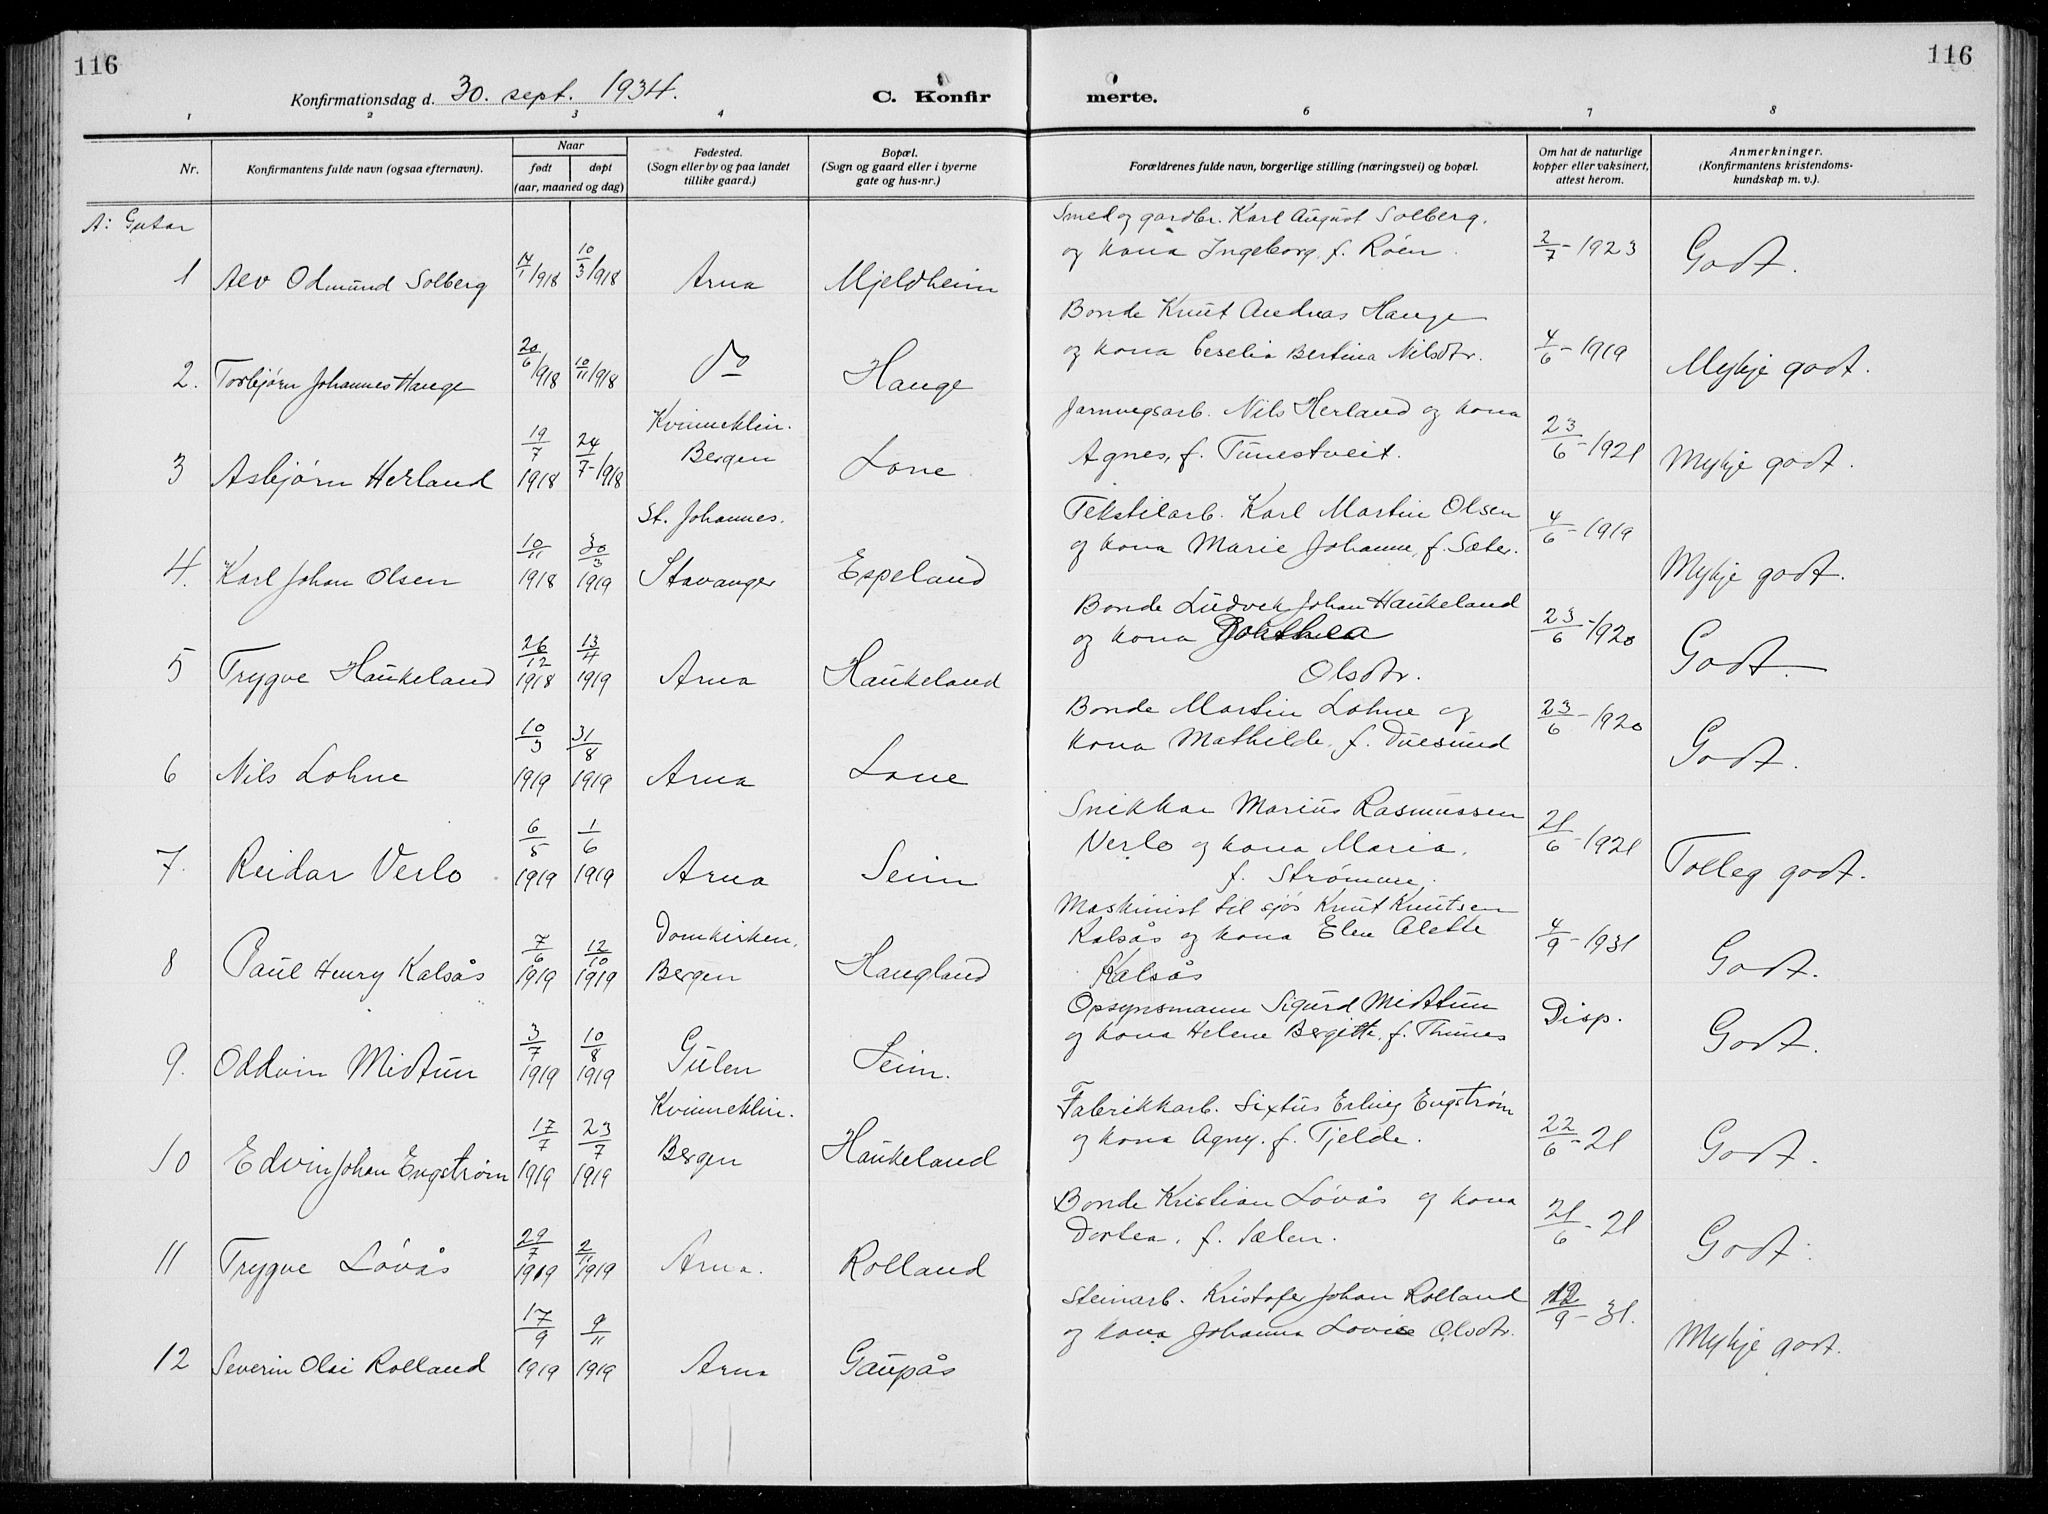 116
116
Konfirmationsdag d. 30. sept. 1934.
C. Konfir
merte.
1 2 3 4 5 6 7 8
Nr.
Konfirmantens fulde navn (ogsaa efternavn).
Naar
født døpt
(aar, maaned og dag)
Fødested.
(Sogn eller by og paa landet
tillike gaard.)
Bopæl.
(Sogn og gaard eller i byerne
gate og hus-nr.)
Forældrenes fulde navn, borgerlige stilling (næringsvei) og bopæl.
Om hat de naturlige
kopper eller vaksinert,
attest herom.
Anmerkninger.
(Konfirmantens kristendoms-
kundskap m. v.).
A: Gutar
Smed og gardbr. Karl August Solberg.
og kona Ingeborg, f. Røen. 2/7-1923 Godt.
1 Alv Odmund Solberg 14/1 1918 10/3 1918 Arna Mjeldheim
Bonde Knut Andreas Hauge
og kona Ceselia Bertina Nilsdtr. 4/6-1919 Mykje godt.
2. Torbjørn Johannes Hauge 20/6 1918 10/11 1918 Do Hauge
Jarnvegsarb. Nils Herland og kona
Agnes, f. Tunestveit. 23/6-1921 Mykje godt.
Kvinneklin.
3 Asbjørn Herland 19/7 1918 24/7-1918 Bergen Lone
Tekstilarb. Karl Martin Olsen
og kona Marie Johanne, f. Sæter. 4/6-1919 Mykje godt.
St. Johannes.
4. Karl Johan Olsen 10/11 1918 30/3 1919 Stavanger Espeland
Bonde Ludvik Johan Haukeland
og kona Dorthea 23/6-1920 Godt.
Olsdtr.
5 Trygve Haukeland 26/12 1918 13/4 1919 Arna Haukeland
Bonde Martin Lohne og
kona Mathilde, f. Duesund 23/6-1920 Godt.
6 Nils Lohne 10/3 1919 31/8 1919 Arna Lone
Snikkar Marius Rasmussen
Verlo og kona Maria,
f. Strømme. 21/6-1921 Tolleg godt.
7. Reidar Verlo 6/5 1919 1/6 1919 Arna Seim
Maskinist til sjøs Knut Knutsen
Kalsås og kona Elen Alette
Kalsås 4/9-1931 Godt.
Domkirken,
8 Paul Henry Kalsås 7/6 1919 12/10 1919 Bergen Haugland
Opsynsmann Sigurd Midttun
og kona Helene Bergitte, f. Thunes Disp. Godt.
9. Oddvin Midtun 3/7 1919 10/8 1919 Gulen Seim.
Fabrikkarb. Sixtus Erling Engstrøm
og kona Agny. f. Tjelde. 22/6-21 Godt.
Kvinneklin.
10 Edvin Johan Engstrøm 17/7 1919 23/7 1919 Bergen Haukeland
Bonde Kristian Løvås og kona
Dortea, f. Sælen. 21/6-21 Godt.
11 Trygve Løvås 29/7 1919 2/11 1919 Arna. Rolland
Steinarb. Kristofer Johan Rolland
og kona Johanna Lovise Olsdtr. 12/9-31. Mykje godt.
12 Severin Olai Rolland 17/9 1919 9/11 1919 Arna Gaupås